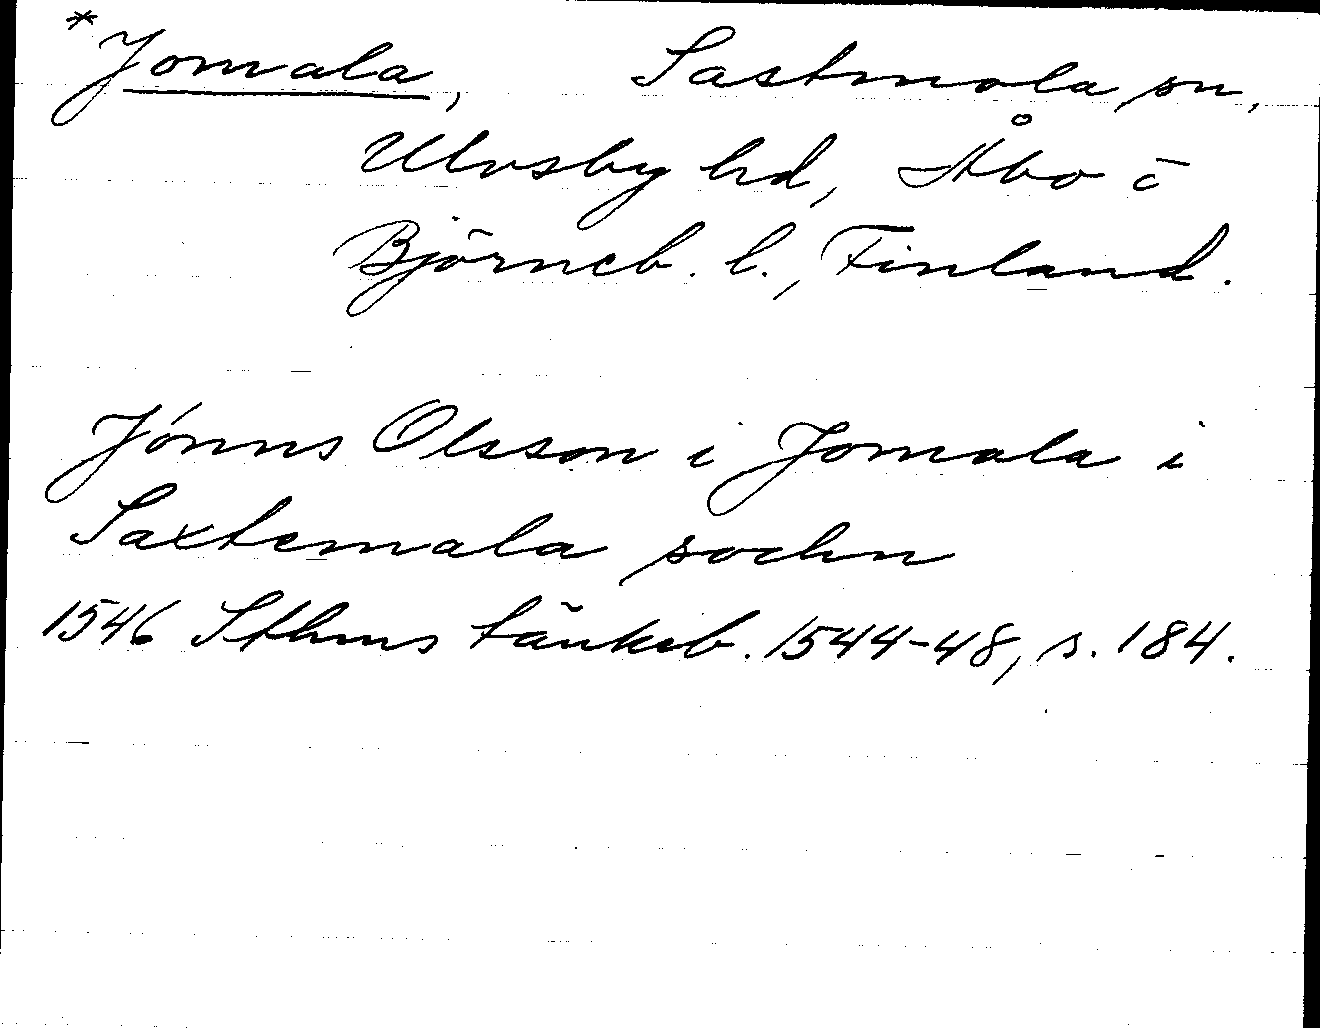 *Jomala, Sastmola sn,
Ulvsby hd, Åbo o
Björneb. l., Finland.
Jónns Olsson i Jomala i
Saxtemala sochn
1546 Sthms tänkeb. 1544-48, s. 184.